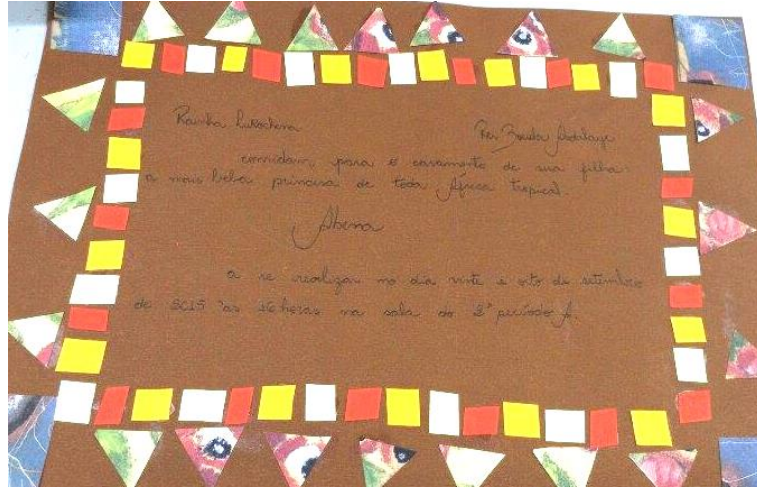 Rainha                    Rei
convidam para o casamento de sua filha:
a mais bela princesa de toda África tropical.
Abena
a se realizar no dia vinte e oito de setembro
de 2015 às 16 horas na sala do 2º período A.